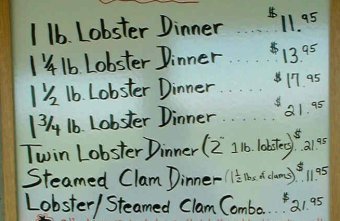 1 lb. Lobster Dinner ...... $11.95
1 1/4 lb. Lobster Dinner .... $13.95
1 1/2 lb. Lobster Dinner ..... $17.95
1 3/4 lb. Lobster Dinner ..... $21.95
Twin Lobster Dinner (2 ~ 1 lb. lobsters) $21.95
Steamed Clam Dinner - (1 1/2 lbs of clams) $11.95
Lobster/Steamed Clam Combo ... $21.95